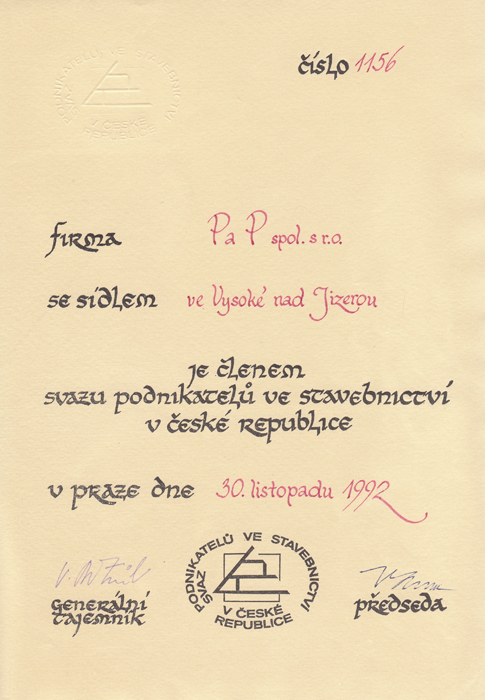 SVAZ PODNIKATELŮ VE STAVEBNICTVÍ
V ČESKÉ
REPUBLICE
číslo 1156
firma P a P spol. s r.o.
se sídlem ve Vysoké nad Jizerou
je členem
svazu podnikatelů ve stavebnictví
v české republice
v praze dne 30. listopadu 1992
SVAZ PODNIKATELŮ VE STAVEBNICTVÍ
V ČESKÉ
REPUBLICE
generální
tajemník
předseda